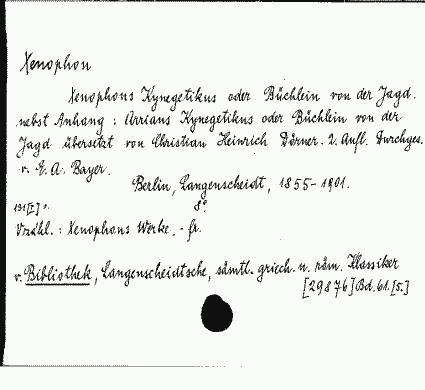 Xenophon
Xenophons Kynegetikus oder Büchlein von der Jagd.
nebst Anhang: Arrians Kynegetikus oder Büchlein von der
Jagd übersetzt von Christian Heinrich Dörner. 2. Aufl. Durchges.
v. E. A. Bayer.
Berlin, Langenscheidt, 1855-1901.
8°.
Vrzähl.: Xenophons Werke. - fr.
v. Bibliothek, Langenscheidtsche, sämtl. griech. u. röm. Klassiker
[29876] Bd. 61. [5.]